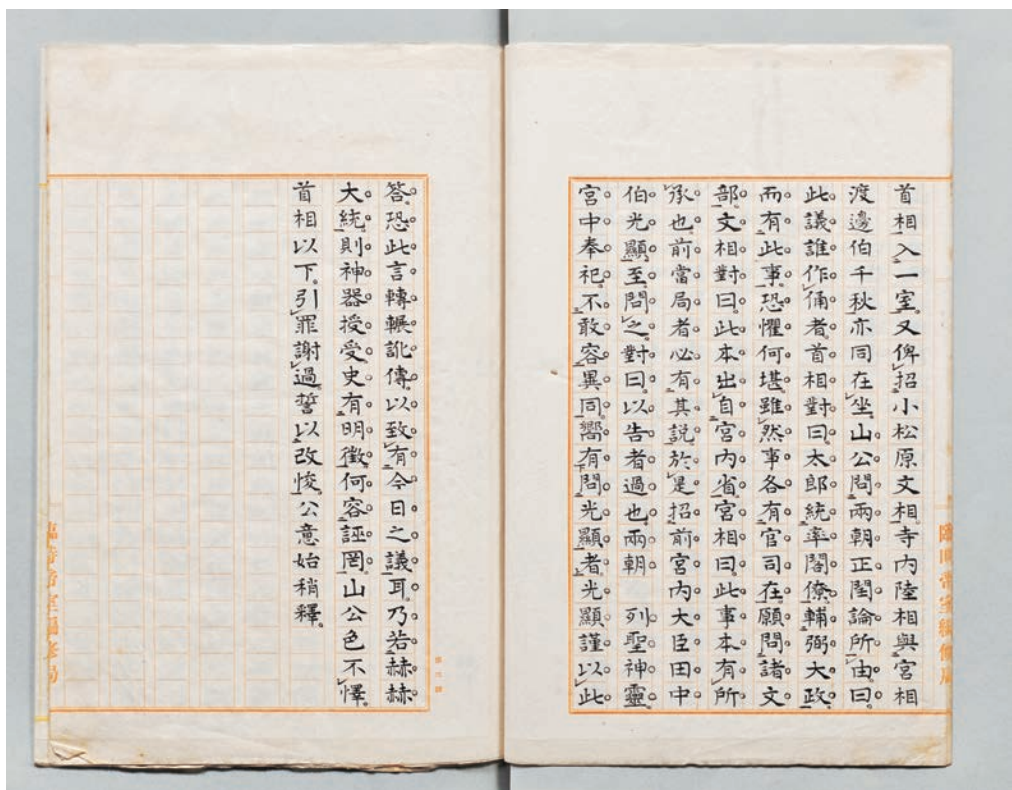 首相入一室。又俾招小松原文相。寺内陸相與宮相
渡邊伯千秋亦同在坐。山公問兩朝正閏論所由曰。
此議誰作俑者。首相對曰。太郎統率閣僚。輔弼大政。
而有此事。恐懼何堪。雖然事各有官司在。願問諸文
部。文相對曰。此本出自宮内省。宮相曰。此事本有所
承也。前當局者必有其説。於是招前宮内大臣田中
伯光顯至。問之。對曰。以告者過也。兩朝　列聖神靈。
宮中奉祀。不敢容異同。嚮有問光顯者。光顯謹以此
答。恐此言轉輾訛傳。以致有今日之議耳。乃若赫赫
大統。則神器授受。史有明徵。何容誣罔。山公色不懌。
首相以下。引罪謝過。誓以改悛。公意始稍釋。
臨時帝室編修局
臨時帝室編修局